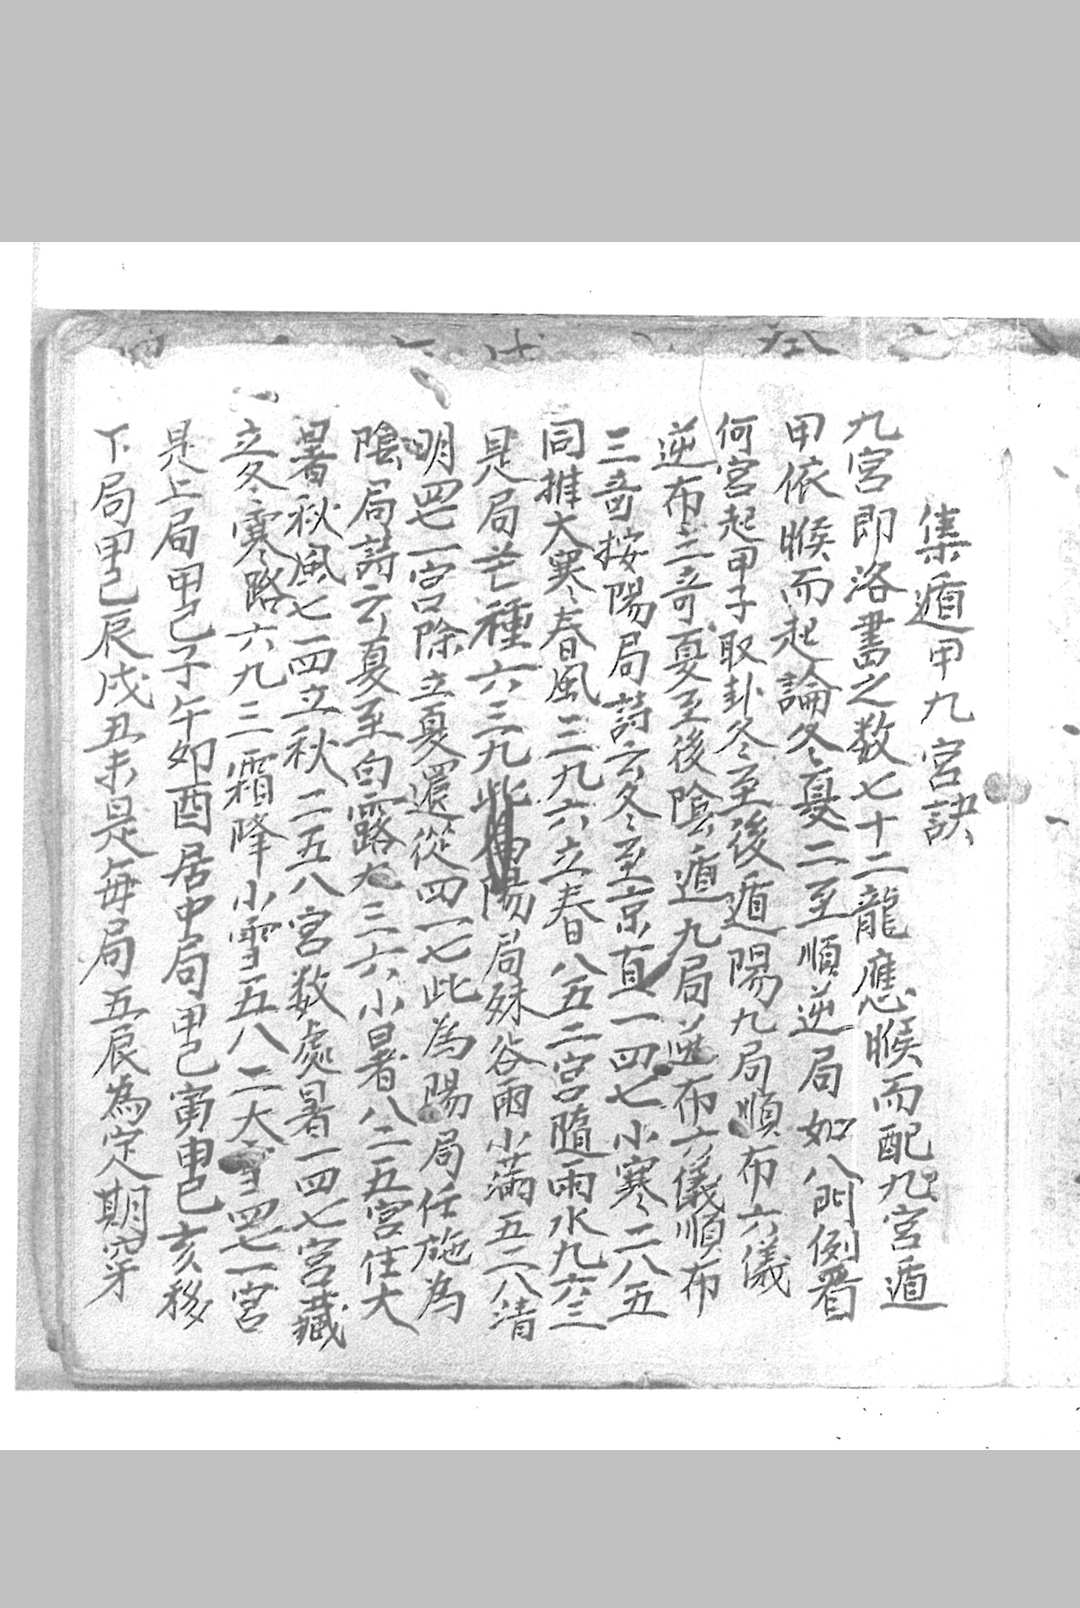 集遁甲九宮訣
九宮即洛書之数七十二龍應㬋而配九宮遁
甲依㬋而起論冬夏二至順逆局如八門例看
何宮起甲子取卦冬至後遁陽九局順布六儀
逆布三竒夏至後陰遁九局逆布六儀順布
三竒按陽局詩云冬至京直一四七小寒二八五
同推大寒春風三九六立春八五二宮隨雨水九六三
是局芒種六三九此陽局殊谷雨小滿五二八清
明四七一宮除立夏還從四一七此為陽局任施為
陰局詩云夏至白露九三六小暑八二五宮住大
暑秋風七一四立秋二五八宮数處暑一四七宮藏
立冬寒路六九三霜降小雪五八二大雪四七一宮
是上局甲己子午卯酉居中局甲己寅申巳亥移
下局甲己辰戌丑未是每局五辰為定期